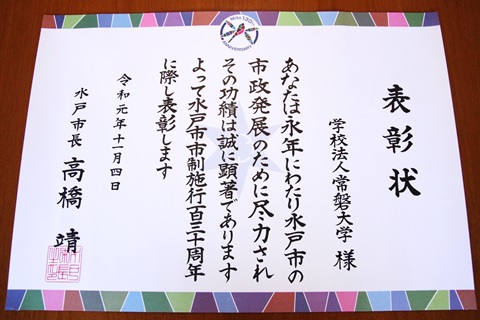 表彰状
学校法人常磐大学 様
あなたは永年にわたり水戸市の
市政発展のために尽力され
その功績は誠に顕著であります
よって水戸市市制施行百三十周年
に際し表彰します
令和元年十一月四日
水戸市長 高橋 靖